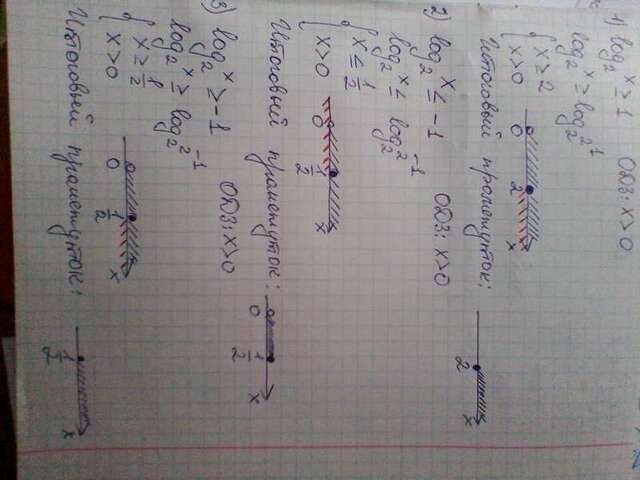 1) log₂ˣ ≥ 1 ОДЗ: x>0
log₂ˣ ≥ log₂2¹
{ x ≥ 2
x>0 0 2 x
Итоговый промежуток: 2 x
2) log₂ˣ ≤ -1 ОДЗ: x>0
log₂ˣ ≤ log₂2⁻¹
{ x ≤ 1/2
x>0 0 1/2 x
Итоговый промежуток: 0 1/2 x
3) log₂ˣ ≥ -1 ОДЗ: x>0
log₂ˣ ≥ log₂2⁻¹
{ x ≥ 1/2
x>0 0 1/2 x
Итоговый промежуток: 1/2 x